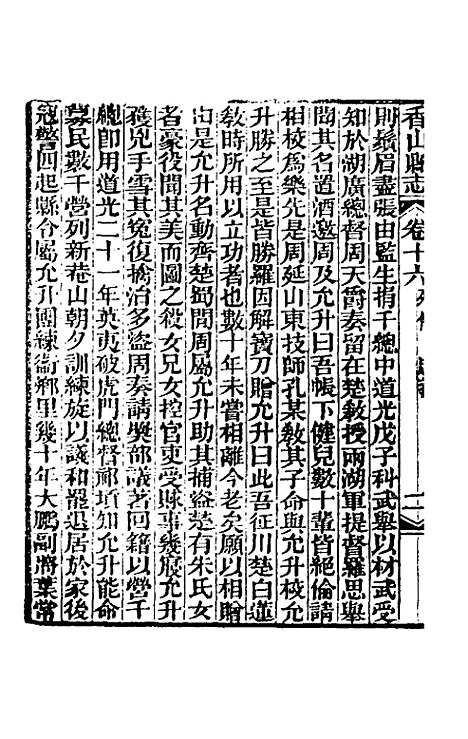 香山縣志 卷十六 列傳
則鬚眉盡張由監生捐千總中道光戊子科武舉以材武受
知於湖廣總督周天爵奏留在楚教授兩湖軍提督羅思舉
聞其名置酒邀周及允升曰吾帳下健兒數十輩皆絕倫請
相校爲樂先是周延山東技師孔某教其子命與允升校允
升勝之至是皆勝羅因解寶刀贈允升曰此吾征川楚白蓮
教時所用以立功者也數十年未嘗相離今老矣願以相贈
由是允升名動齊楚蜀閒周屬允升助其捕盜楚有朱氏女
者豪役聞其美而圖之殺女兄女控官吏受賕事幾寢允升
獲兇手雪其冤復擒治多盜周奏請奬部議著回籍以營千
總即用道光二十一年英夷破虎門總督祁𡎴知允升能命
募民數千營列新菴山朝夕訓練旋以議和罷退居於家後
寇警四起縣令屬允升團練衞鄉里幾十年大鵬副將葉常